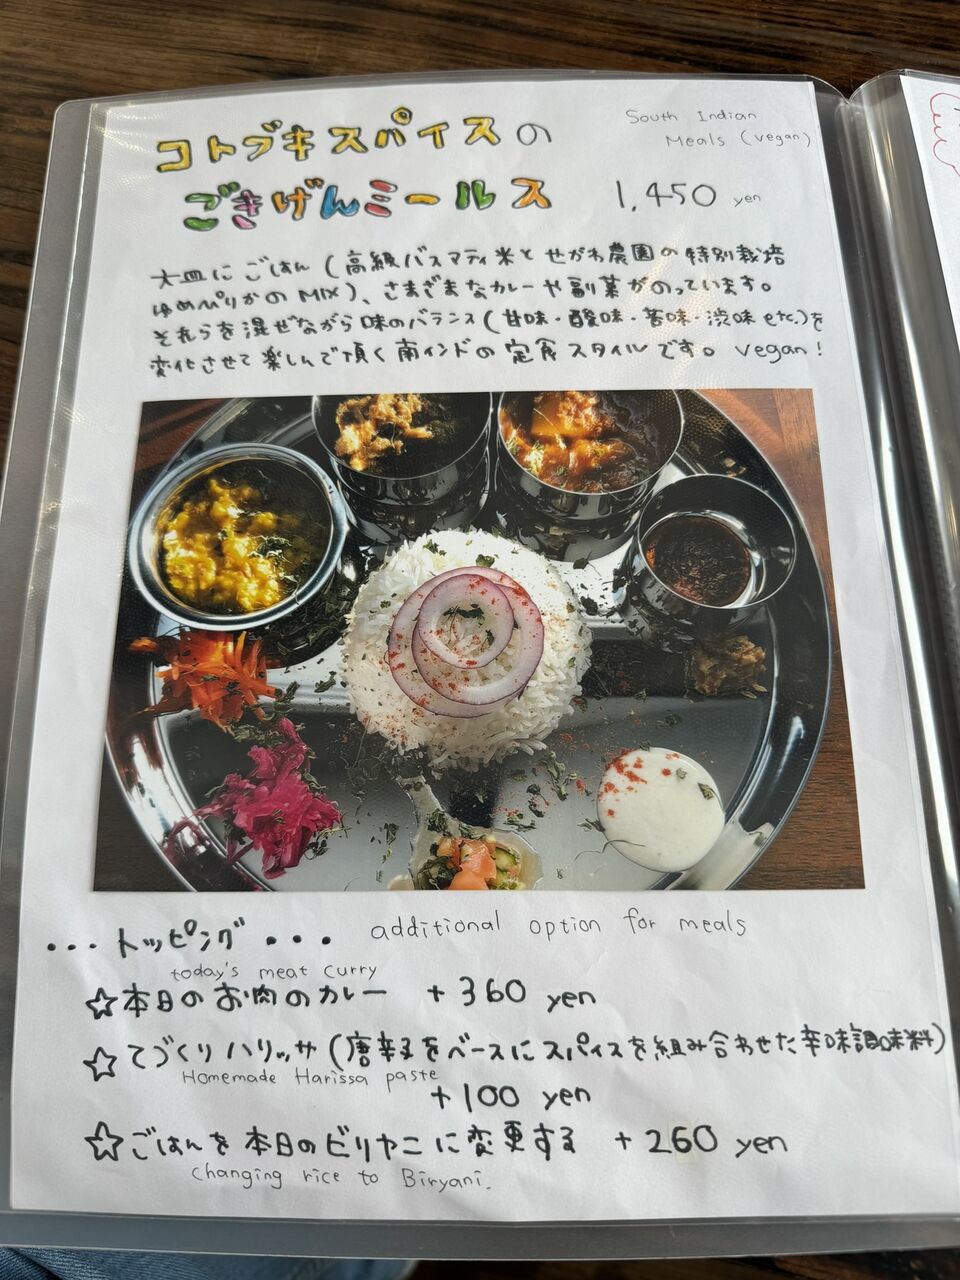 コトブキスパイスの
South Indian
Meals (vegan)
ごきげんミールス
1,450 yen
大皿に ごはん (高級バスマティ米と せがわ農園の特別栽培
ゆめぴりかの MIX)、さまざまなカレーや副菜がのっています。
それらを混ぜながら味のバランス(甘味・酸味・苦味・渋味 etc.)を
変化させて楽しんで頂く南インドの定食スタイルです。vegan!
・・・トッピング・・・ additional option for meals
today's meat curry
☆本日のお肉のカレー +360 yen
☆てづくりハリッサ(唐辛子をベースにスパイスを組み合わせた辛味調味料)
Homemade Harissa paste
+100 yen
☆ごはんを本日のビリヤニに変更する +260 yen
changing rice to Biryani.